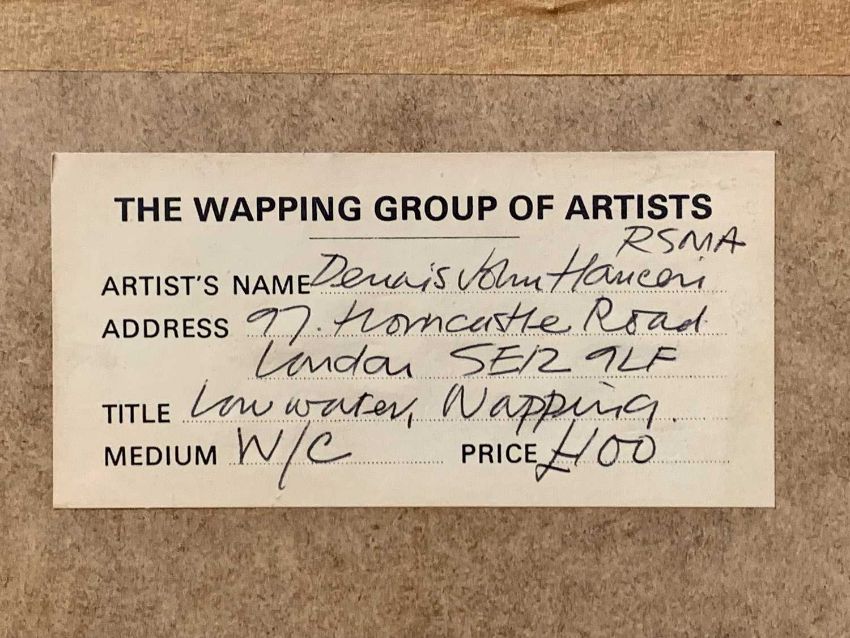 THE WAPPING GROUP OF ARTISTS
RSMA
ARTIST'S NAME Dennis John Hanceri
ADDRESS 97. Horncastle Road
London SE12 9LF
TITLE Low water, Wapping.
MEDIUM W/C PRICE £100